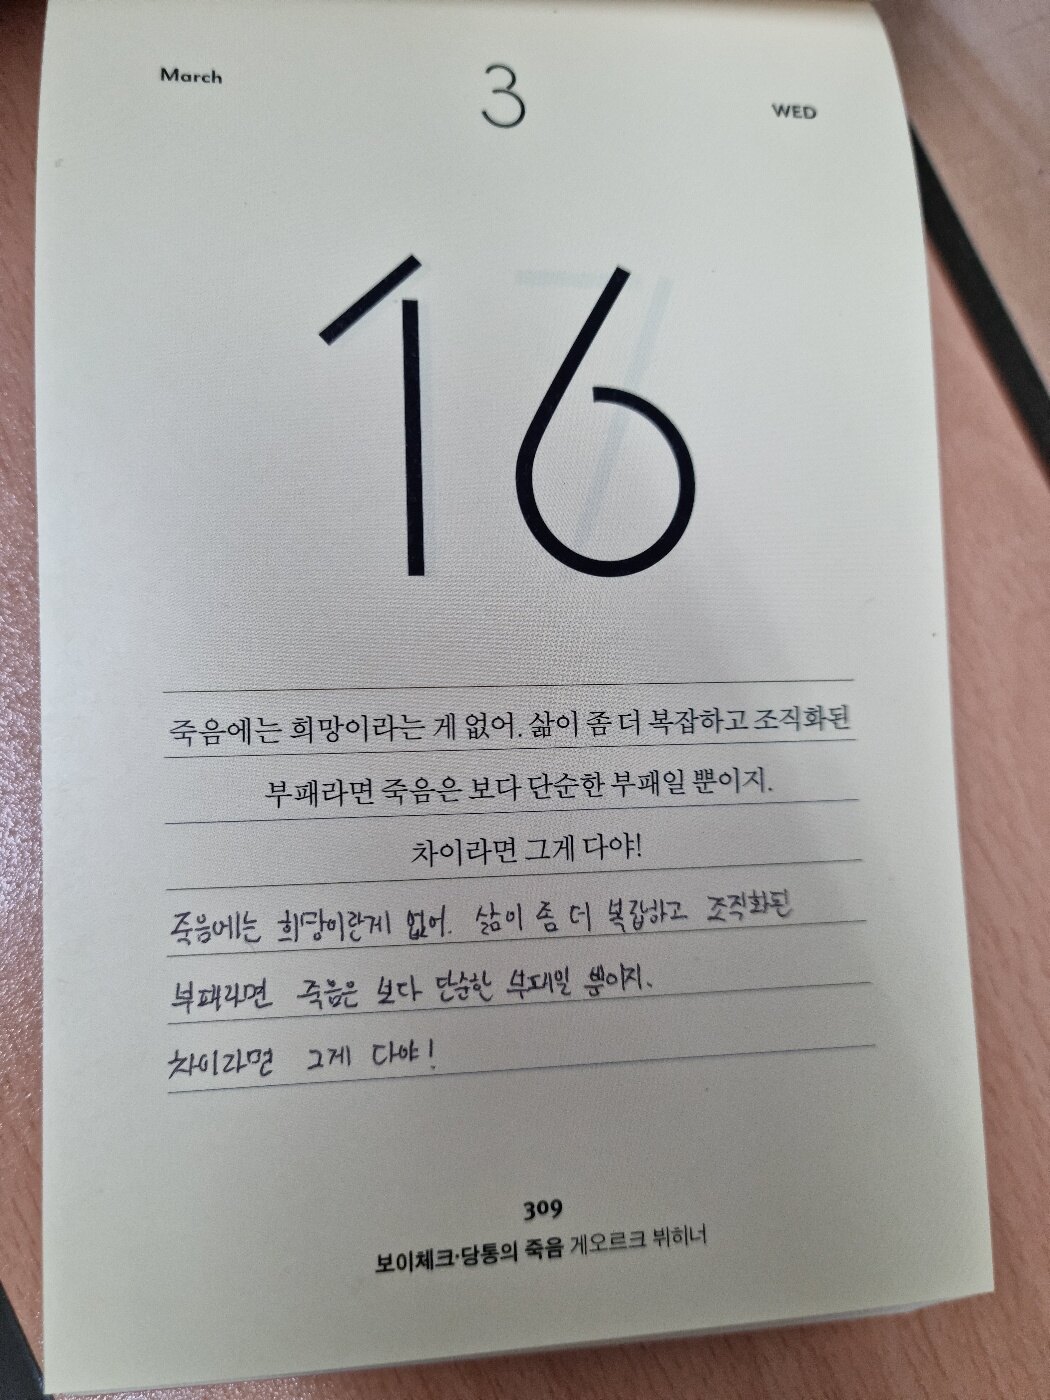 March
3
WED
16
죽음에는 희망이라는 게 없어. 삶이 좀 더 복잡하고 조직화된
부패라면 죽음은 보다 단순한 부패일 뿐이지.
차이라면 그게 다야!
죽음에는 희망이란게 없어. 삶이 좀 더 복잡하고 조직화된
부패라면 죽음은 보다 단순한 부패일 뿐이지.
차이라면 그게 다야!
309
보이체크·당통의 죽음 게오르크 뷔히너